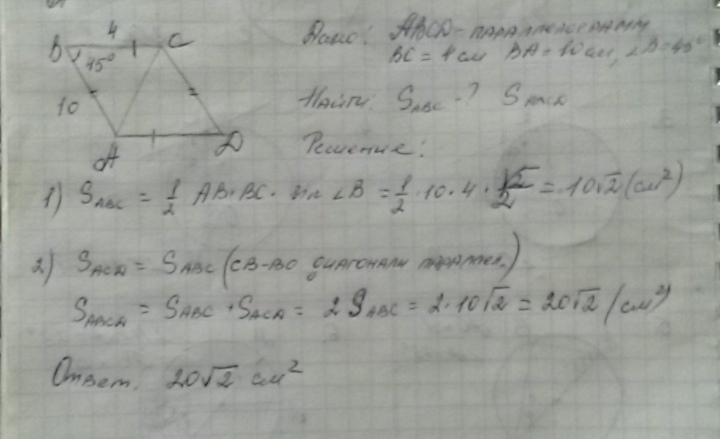 4
B C
45°
10
A D
Дано: ABCD - параллелограмм
BC = 4 см BA = 10 см, ∠B = 45°
Найти: S_ABC - ? S_ABCD
Решение:
1) S_ABC = 1/2 AB · BC · sin ∠B = 1/2 · 10 · 4 · √2/2 = 10√2 (см²)
2) S_ACD = S_ABC (св-во диагонали параллел.)
S_ABCD = S_ABC + S_ACD = 2 S_ABC = 2 · 10√2 = 20√2 (см²)
Ответ. 20√2 см²